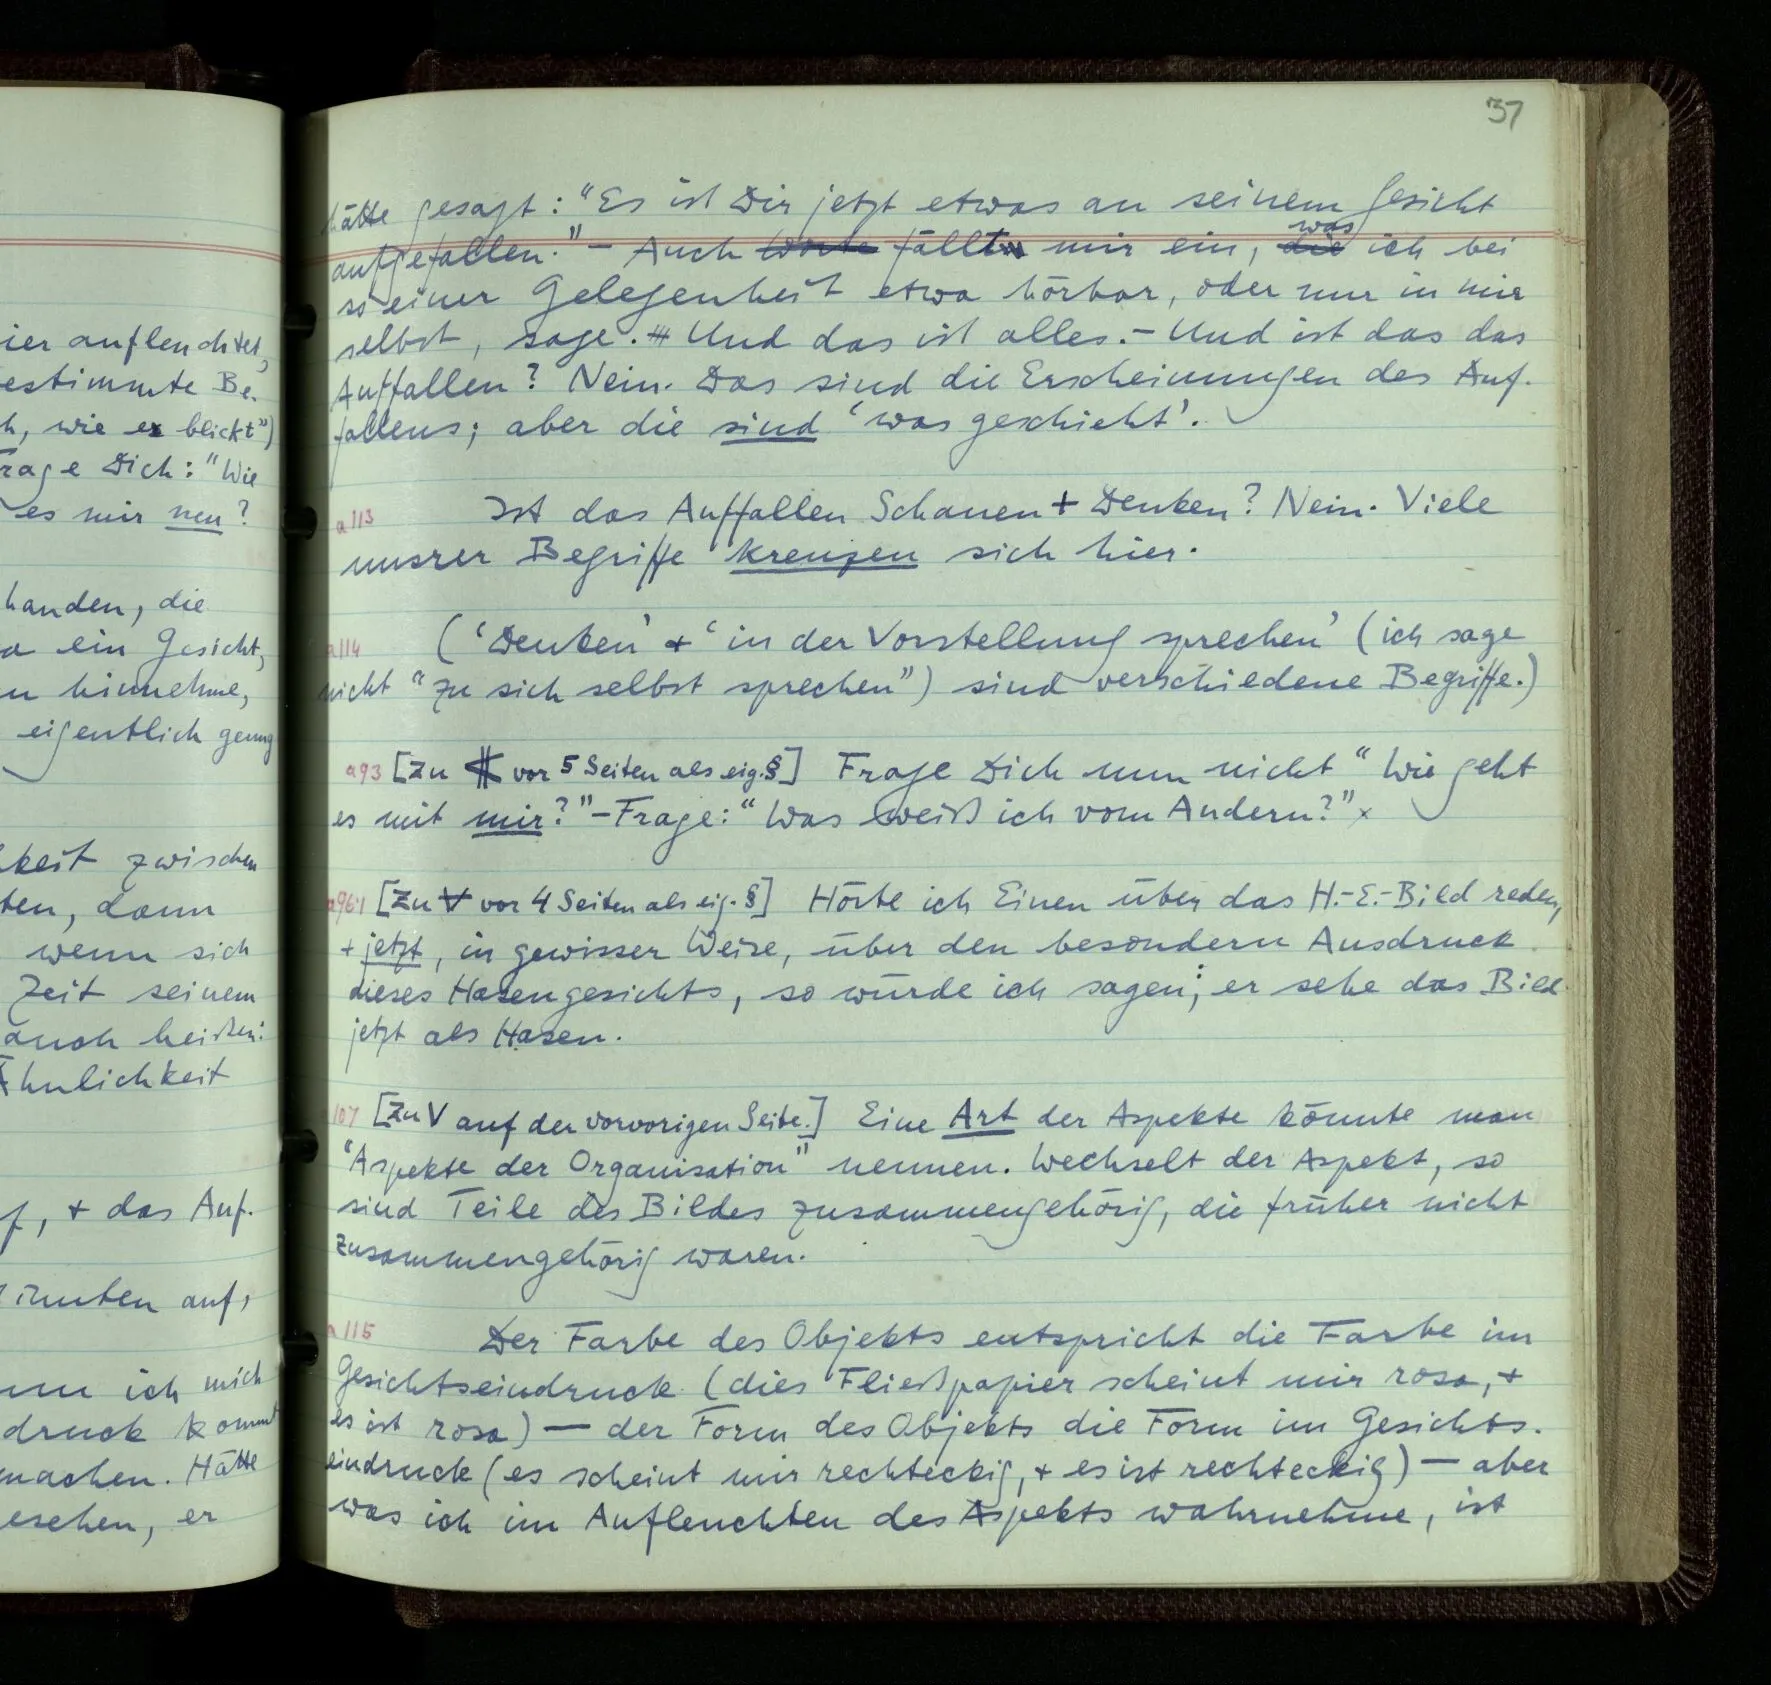 ier aufleuchtet,
estimmte Be-
h, wie er blickt")
rage Dich: "Wie
es mir neu?
handen, die
a ein Gesicht,
n hinnehme,
eigentlich genug
keit zwischen
ten, dann
wenn sich
Zeit seinem
auch heißen:
Ähnlichkeit
f, + das Auf-
auf,
nn ich mich
druck kommt
machen. Hätte
esehen, er
37
hätte gesagt: "Es ist Dir jetzt etwas an seinem Gesicht
aufgefallen." – Auch Worte fällt mir ein, die was ich bei
so einer Gelegenheit etwa hörbar, oder nur in mir
selbst, sage. Und das ist alles. – Und ist das das
Auffallen? Nein. Das sind die Erscheinungen des Auf-
fallens; aber die sind 'was geschieht'.
a113 Ist das Auffallen Schauen + Denken? Nein. Viele
unsrer Begriffe kreuzen sich hier.
a114 ('Denken' + 'in der Vorstellung sprechen' (ich sage
nicht "zu sich selbst sprechen") sind verschiedene Begriffe.)
a93 [Zu vor 5 Seiten als eig. §] Frage Dich nun nicht "Wie geht
es mit mir?" – Frage: "Was weiß ich vom Andern?" x
a96.1 [Zu V vor 4 Seiten als eig. §] Hörte ich Einen über das H.-E.-Bild reden,
+ jetzt, in gewisser Weise, über den besondern Ausdruck
dieses Hasengesichts, so würde ich sagen, er sehe das Bild
jetzt als Hasen.
a107 [Zu V auf der vorvorigen Seite.] Eine Art der Aspekte könnte man
"Aspekte der Organisation" nennen. Wechselt der Aspekt, so
sind Teile des Bildes zusammengehörig, die früher nicht
zusammengehörig waren.
a115 Der Farbe des Objekts entspricht die Farbe im
Gesichtseindruck (dies Fließpapier scheint mir rosa, +
es ist rosa) — der Form des Objekts die Form im Gesichts-
eindruck (es scheint mir rechteckig, + es ist rechteckig) — aber
was ich im Aufleuchten des Aspekts wahrnehme, ist